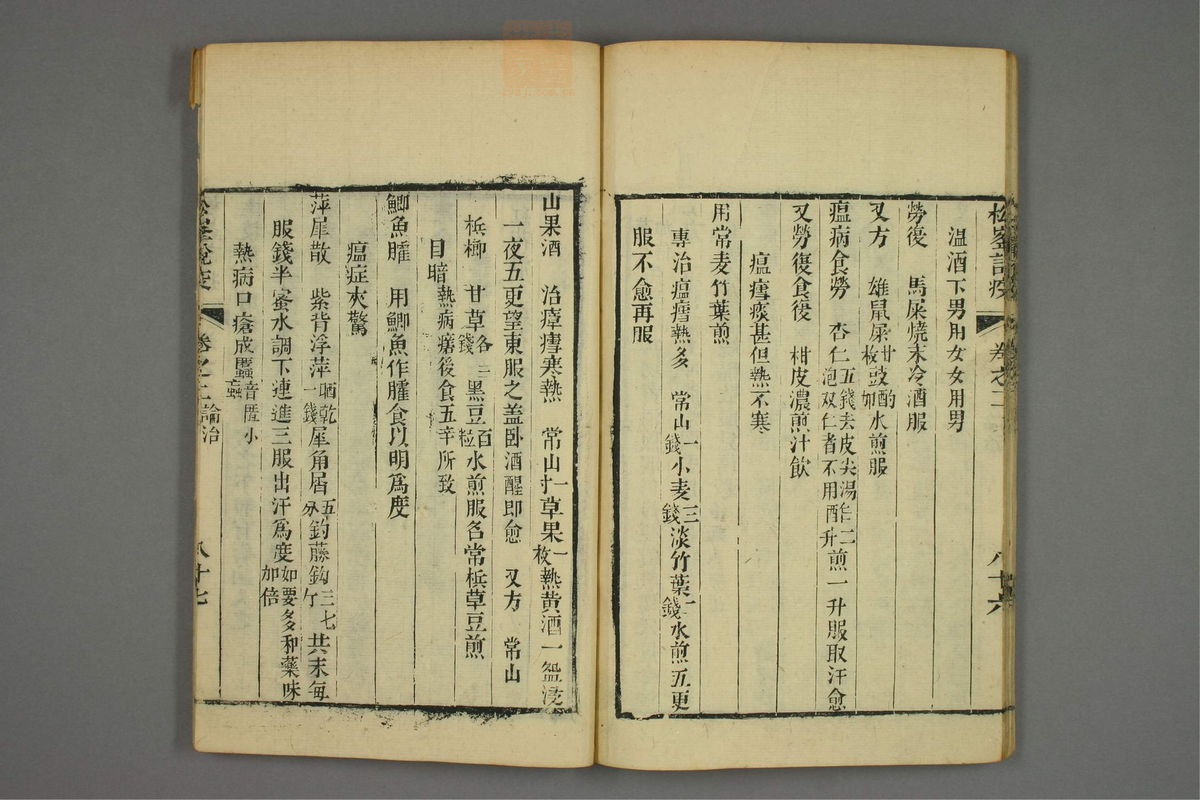 松峯説疫 卷之二 八十六
溫酒下男用女女用男
勞後 馬屎燒末冷酒服
又方 雄鼠屎廿枚豉酌加水煎服
瘟病食勞 杏仁五錢去皮尖湯泡双仁者不用酢二升煎一升服取汗愈
又勞復食後 柑皮濃煎汁飲
瘟瘧痰甚但熱不寒
用常麦竹葉煎
專治瘟瘧熱多 常山一錢小麦三錢淡竹葉一錢水煎五更
服不愈再服
山果酒 治瘴瘧寒熱 常山一寸草果一枚熱黄酒一盌浸
一夜五更望東服之盖卧酒醒即愈 又方 常山
梹榔 甘草各二錢黑豆百粒水煎服名常梹草豆煎
目暗熱病瘥後食五辛所致
鯽魚臛 用鯽魚作臛食以明爲度
瘟症夾驚
萍犀散 紫背浮萍晒乾一錢犀角屑五分釣藤鈎三七个共末每
服錢半蜜水調下連進三服出汗爲度如要多和藥味加倍
熱病口瘡成䘌音匿小蟲
松峯説疫 卷之二論治 八十七